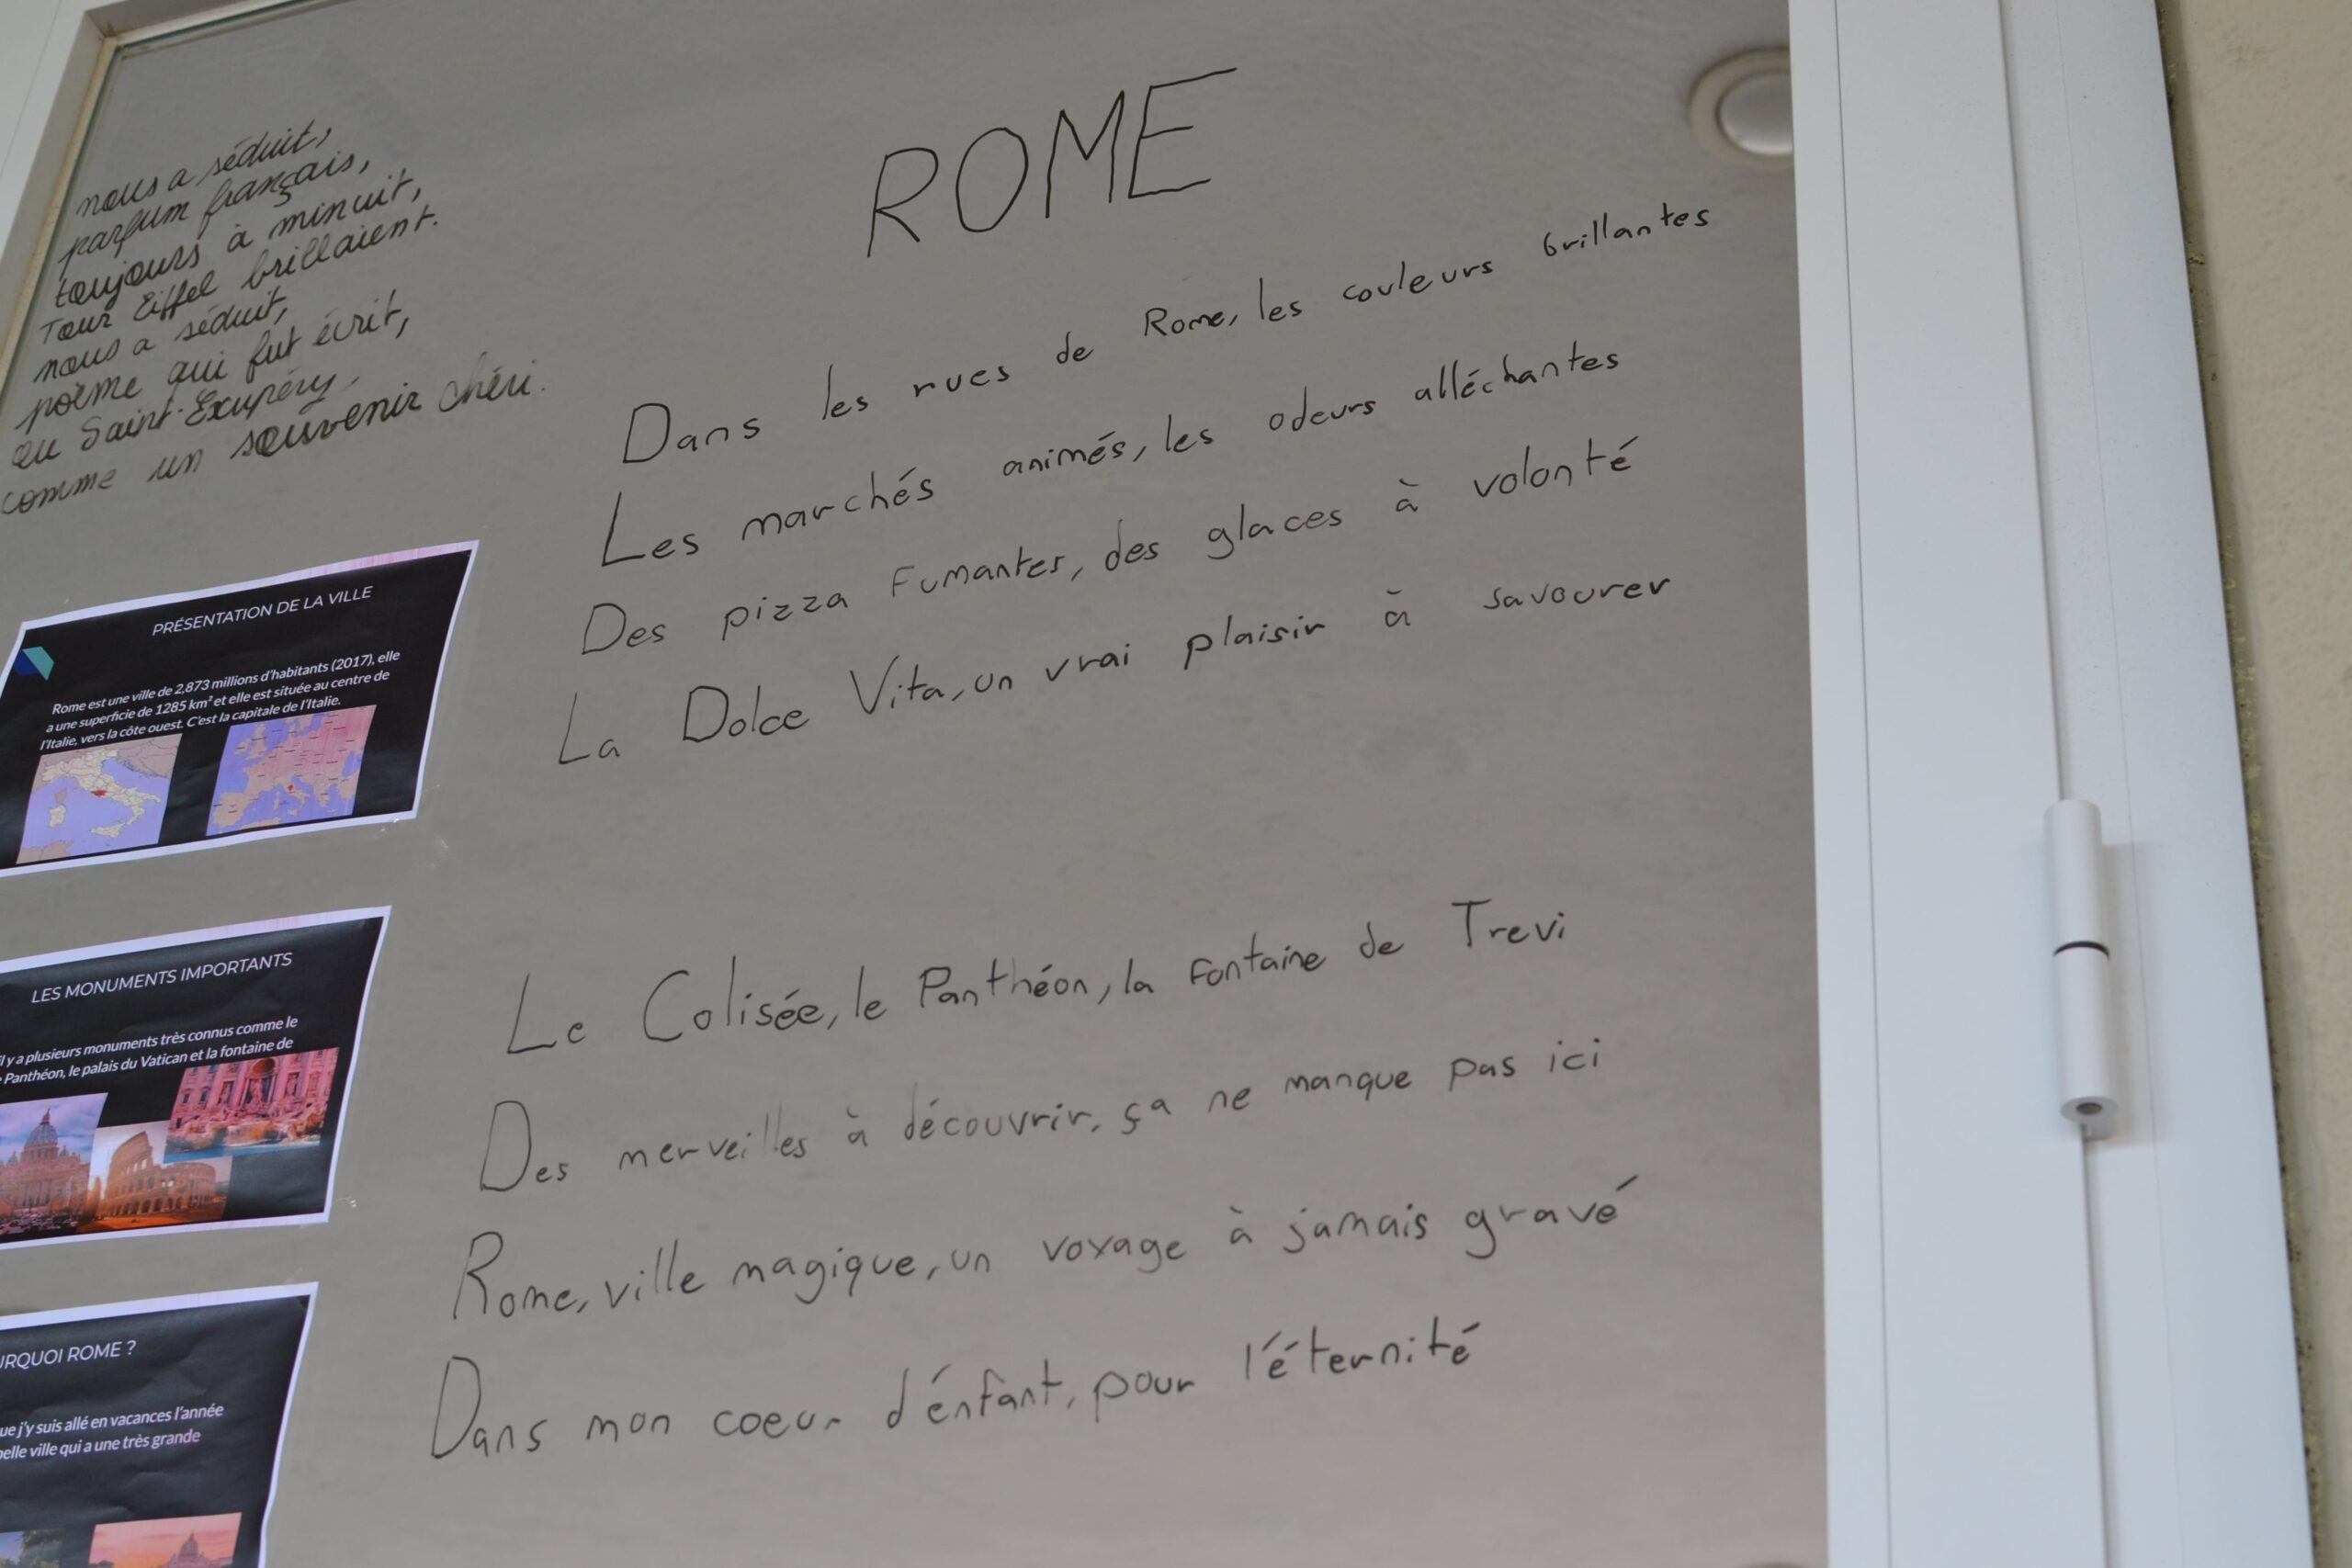 nous a séduit,
parfum français,
toujours à minuit,
Tour Eiffel brillaient.
nous a séduit,
poème qui fut écrit,
Saint-Exupéry,
comme un souvenir chéri.
ROME
Dans les rues de Rome, les couleurs brillantes
Les marchés animés, les odeurs alléchantes
Des pizza fumantes, des glaces à volonté
La Dolce Vita, un vrai plaisir à savourer
Le Colisée, le Panthéon, la fontaine de Trevi
Des merveilles à découvrir, ça ne manque pas ici
Rome, ville magique, un voyage à jamais gravé
Dans mon coeur d'énfant, pour l'éternité
PRÉSENTATION DE LA VILLE
Rome est une ville de 2,873 millions d'habitants (2017), elle
a une superficie de 1285 km² et elle est située au centre de
l'Italie, vers la côte ouest. C'est la capitale de l'Italie.
LES MONUMENTS IMPORTANTS
il y a plusieurs monuments très connus comme le
Panthéon, le palais du Vatican et la fontaine de
URQUOI ROME ?
ue j'y suis allé en vacances l'année
belle ville qui a une très grande